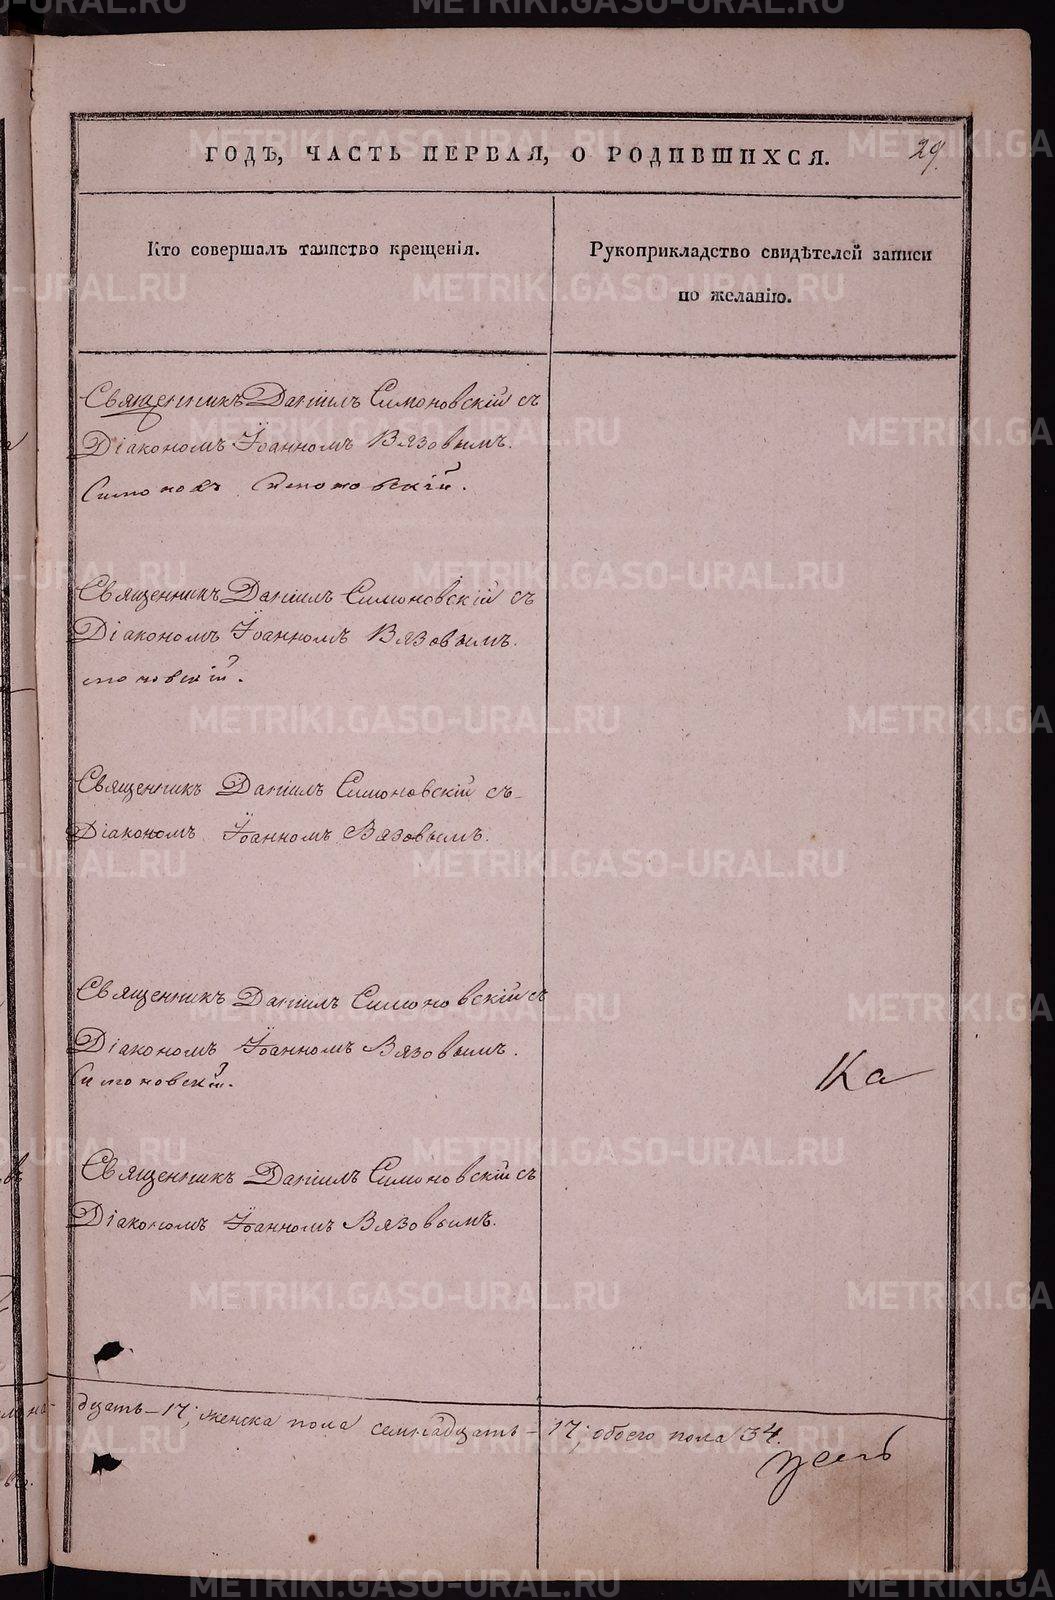 ГОДЪ, ЧАСТЬ ПЕРВАЯ, О РОДИВШИХСЯ.
29.
Кто совершалъ таинство крещенія.
Рукоприкладство свидѣтелей записи
по желанію.
Священникъ Даніилъ Симоновскій съ
Діакономъ Іоанномъ Вязовымъ.
Симоновскій.
Священникъ Даніилъ Симоновскій съ
Діакономъ Іоанномъ Вязовымъ.
моновскій.
Священникъ Даніилъ Симоновскій съ
Діакономъ Іоанномъ Вязовымъ.
Священникъ Даніилъ Симоновскій съ
Діакономъ Іоанномъ Вязовымъ.
Симоновскій.
Ка
Священникъ Даніилъ Симоновскій съ
Діакономъ Іоанномъ Вязовымъ.
дцать – 17; женска пола семнадцать – 17; обоего пола 34.
METRIKI.GASO-URAL.RU